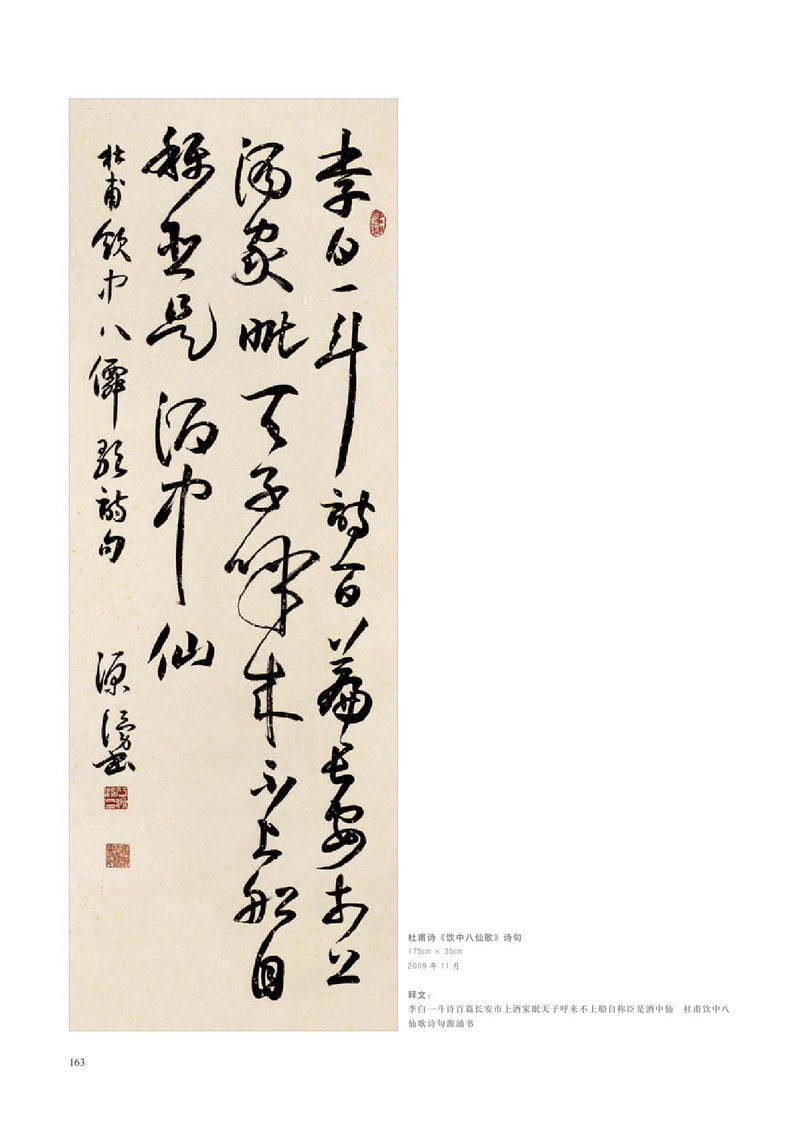 李白一斗詩百篇長安市上
酒家眠天子呼來不上船自
稱臣是酒中仙
杜甫飲中八僊歌詩句
源湧書
杜甫诗《饮中八仙歌》诗句
175cm × 35cm
2009 年 11 月
释文：
李白一斗诗百篇长安市上酒家眠天子呼来不上船自称臣是酒中仙　杜甫饮中八
仙歌诗句源涌书
163